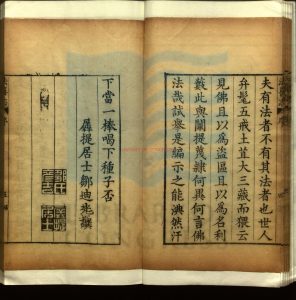 夫有法者不有其法者也世人
弁髦五戒土苴大三藏而猥云
見佛且以為盜區且以為名利
藪此與闡提蔑隸何異何言佛
法哉試舉是編示之能澳然汗
下當一棒喝下種子否
羼提居士鄒迪光譔